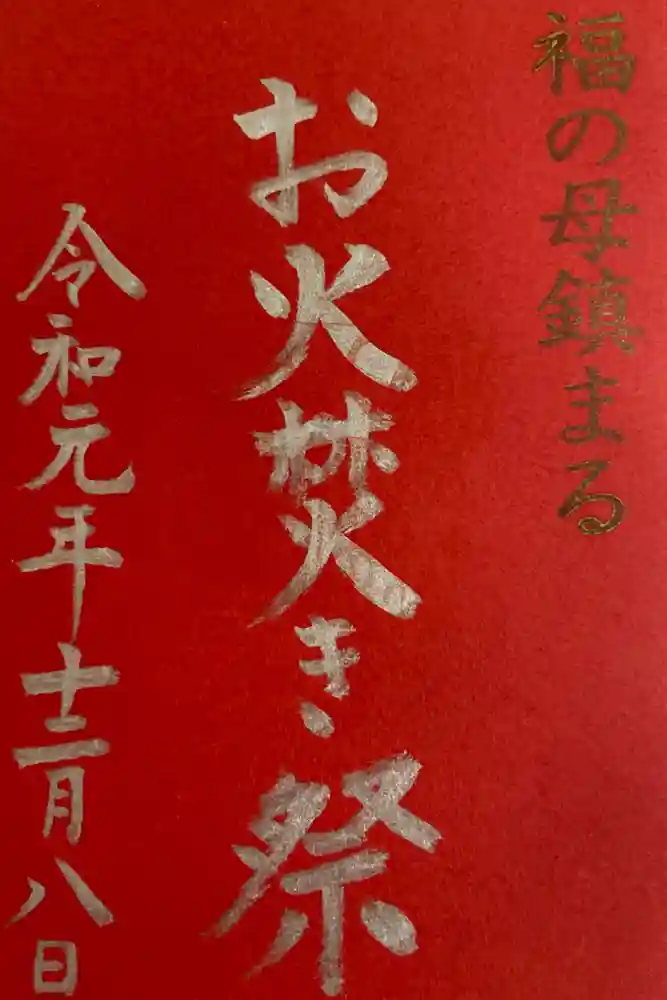 福の母鎮まる
お火焚き祭
令和元年十二月八日